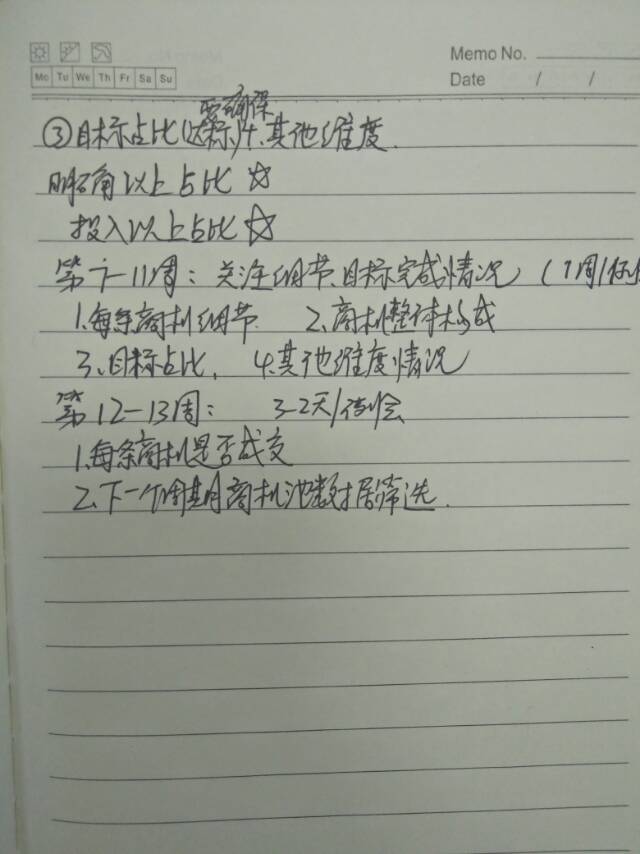 Memo No.
Mo Tu We Th Fr Sa Su
Date / /
要确保
③目标占比(达标)4.其他维度.
明确以上占比☆
投入以上占比☆
第七-11周：关注细节、目标完成情况（1周1例
1.每条商机细节 2.商机整体构成
3、目标占比， 4.其他维度情况
第12-13周： 3-2天/例会
1.每条商机是否成交
2.下一个周期商机池数据筛选.